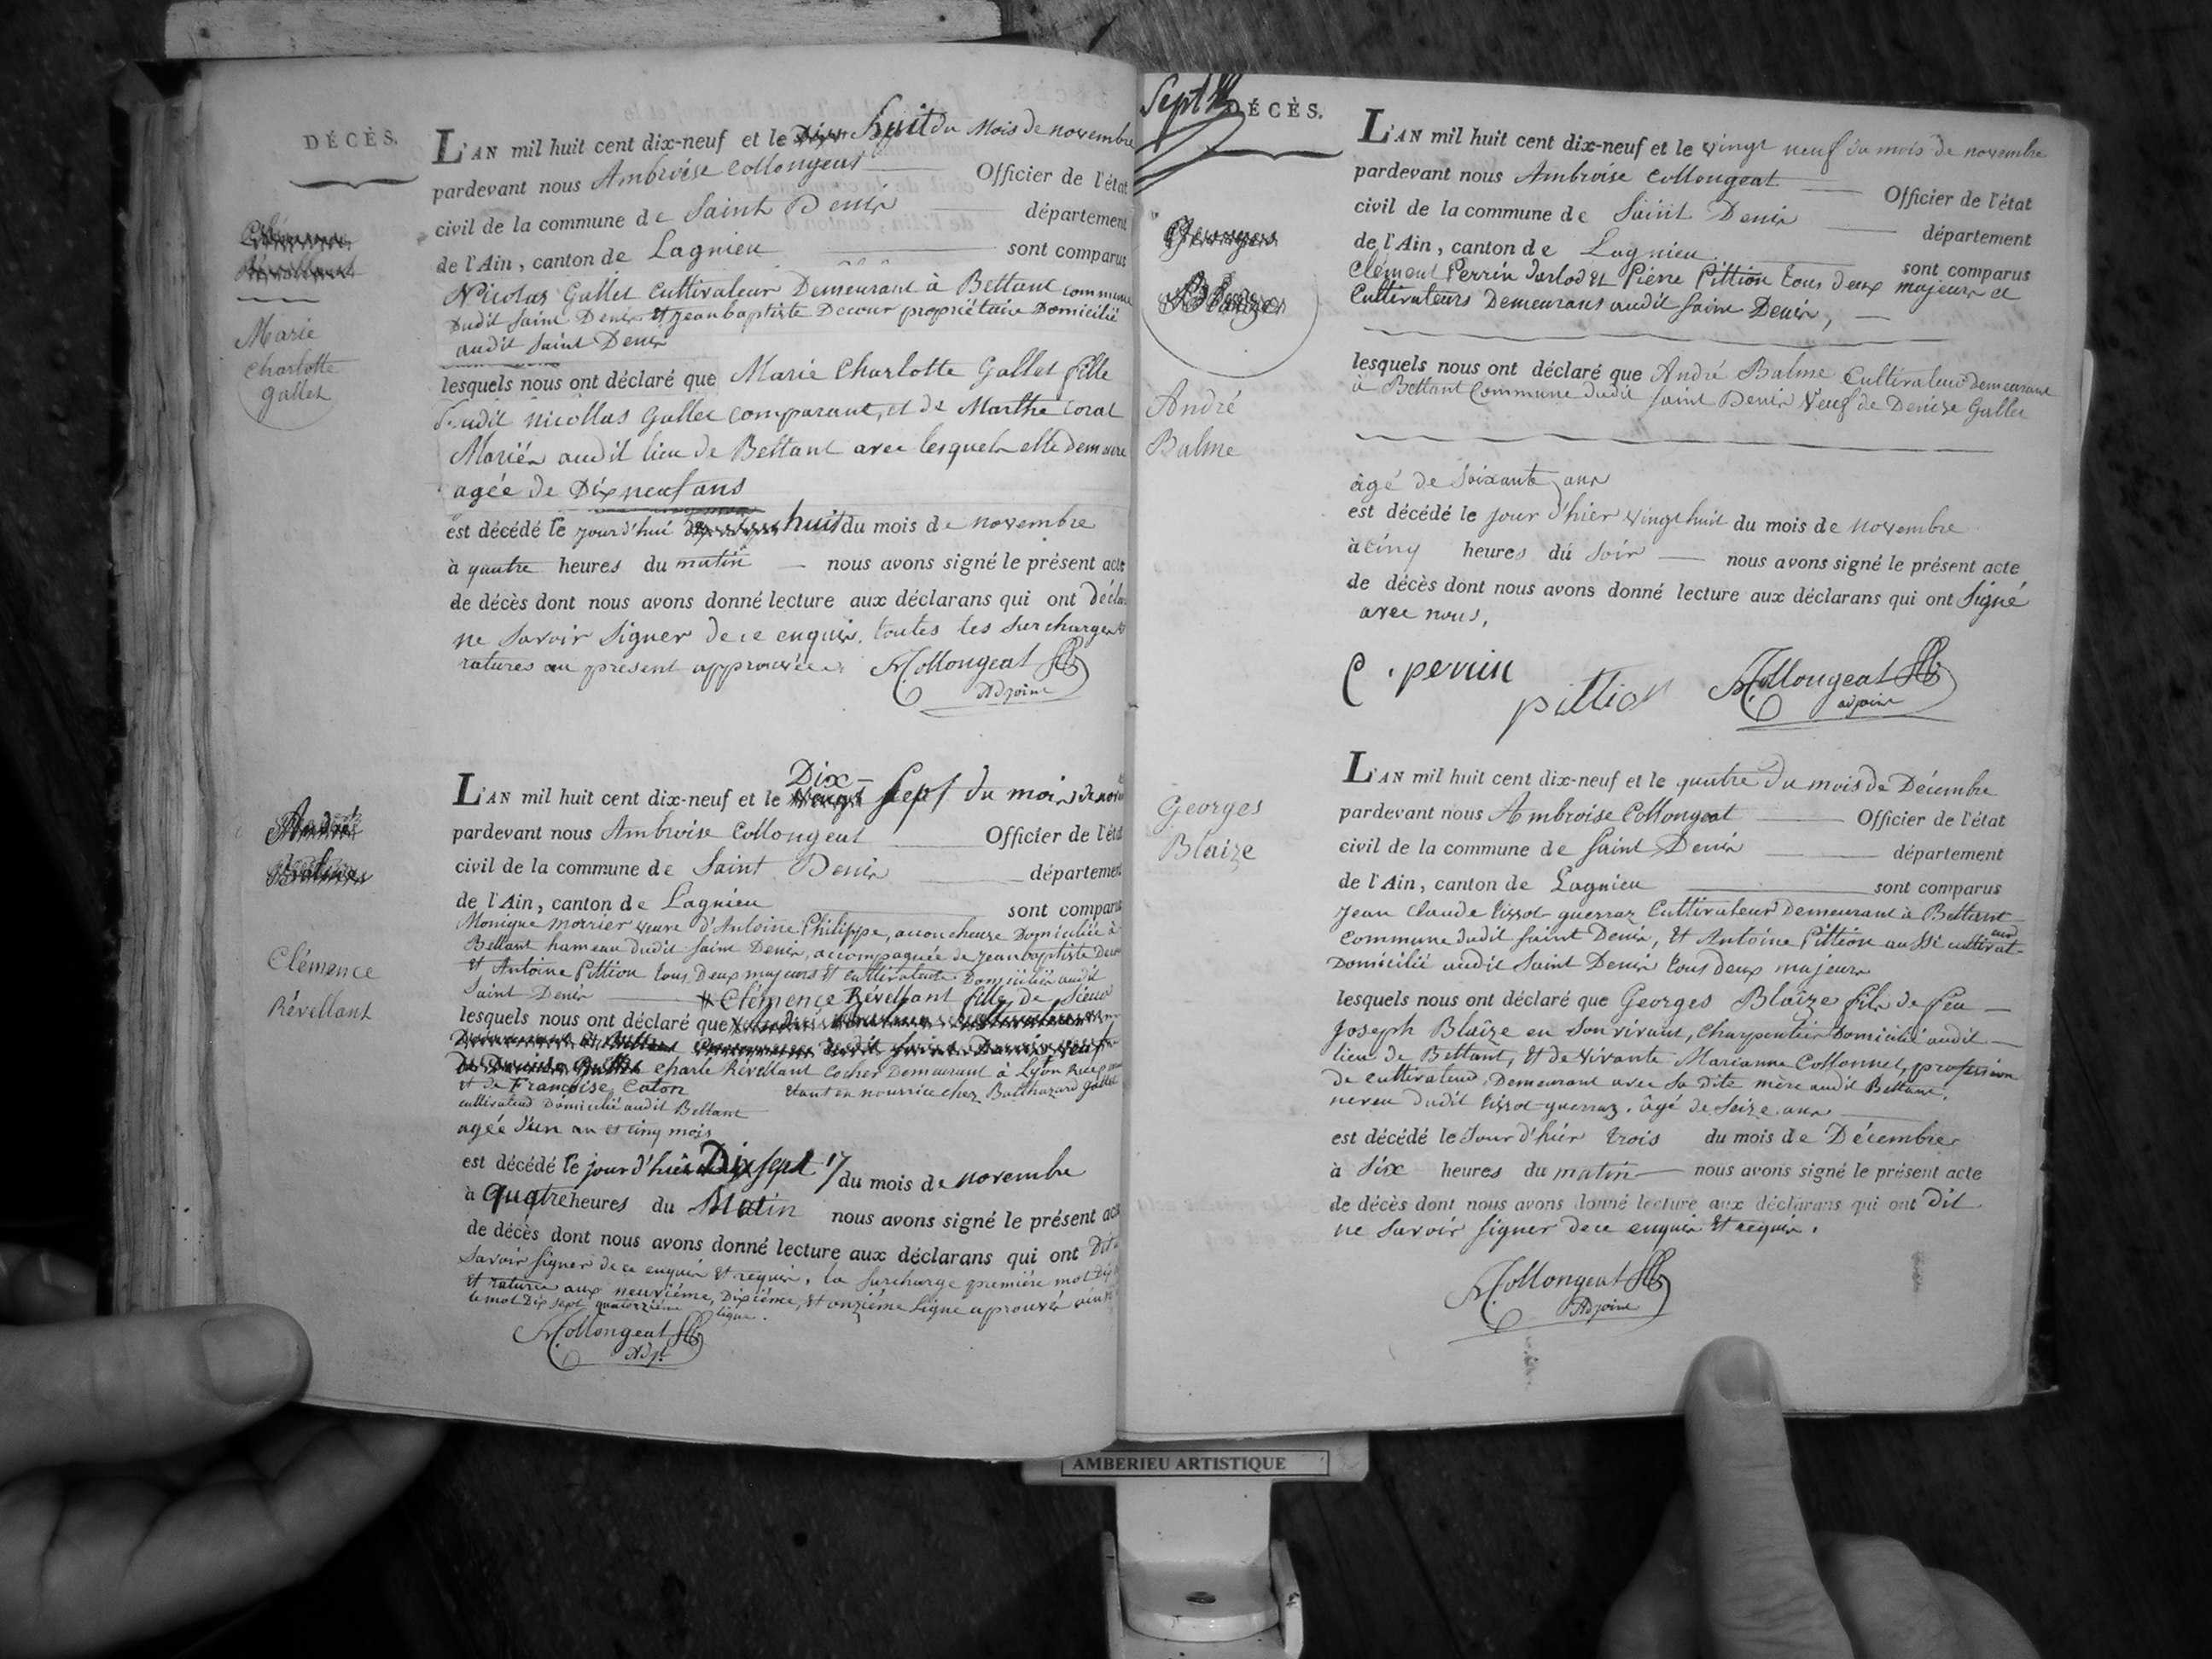 DÉCÈS.
L'AN mil huit cent dix-neuf et le huit du mois de novembre
pardevant nous Ambroise Collongeat Officier de l'état
civil de la commune de Saint Denis département
de l'Ain, canton de Lagnieu sont comparus
Nicolas Gallet Cultivateur Demeurant à Bettant commune
dudit Saint Denis et jean baptiste Decour propriétaire Domicilié
audit Saint Denis
Marie
Charlotte
Gallet
lesquels nous ont déclaré que Marie Charlotte Gallet fille
dudit Nicollas Gallet comparant, et de Marthe Corat
Mariés audit lieu de Bettant avec lesquels elle demeure
agée de Dix neuf ans
est décédé le jourd'hui huit du mois de novembre
à quatre heures du matin nous avons signé le présent acte
de décès dont nous avons donné lecture aux déclarans qui ont
ne savoir signer de ce enquis. toutes les surcharges
ratures au présent approuvées
Collongeat
Adjoint
L'AN mil huit cent dix-neuf et le Dix-sept du mois de
pardevant nous Ambroise Collongeat Officier de l'état
civil de la commune de Saint Denis département
de l'Ain, canton de Lagnieu sont comparus
Monique morrier veuve d'Antoine Philippe, accoucheuse Domiciliée à
Bettant hameau dudit Saint Denis, accompagnée de jean baptiste
et Antoine Pittion tous Deux majeurs et cultivateurs Domiciliés audit
Saint Denis
André
Balme
Clémence
Révellant
lesquels nous ont déclaré que Clémence Révellant fille de Sieur
Charle Révellant Cocher Demeurant à Lyon
et de Françoise Caton étant en nourrice chez Balthazard Gallet
cultivateur Domicilié audit Bettant
agée d'un an et cinq mois
est décédé le jour d'hui Dix sept 17 du mois de novembre
à quatre heures du Matin nous avons signé le présent acte
de décès dont nous avons donné lecture aux déclarans qui ont Dit
savoir signer de ce enquis et requis, la surcharge première mot
et raturés aux neuvième, Dixième, et onzième ligne aprouvés
le mot Dix sept quatorzième ligne.
Collongeat
Adjt
DÉCÈS.
L'AN mil huit cent dix-neuf et le vingt neuf du mois de novembre
pardevant nous Ambroise Collongeat Officier de l'état
civil de la commune de Saint Denis département
de l'Ain, canton de Lagnieu sont comparus
Clément Perrin et Pierre Pittion tous deux majeurs et
Cultivateurs Demeurans audit Saint Denis,
Georges
André
Balme
lesquels nous ont déclaré que André Balme Cultivateur demeurant
à Bettant Commune dudit Saint Denis Veuf de Denise Gallet
âgé de soixante ans
est décédé le jour d'hier vingt huit du mois de novembre
à cinq heures du soir nous avons signé le présent acte
de décès dont nous avons donné lecture aux déclarans qui ont signé
avec nous,
C. perrin
pittion
Collongeat
adjoint
L'AN mil huit cent dix-neuf et le quatre du mois de Décembre
pardevant nous Ambroise Collongeat Officier de l'état
civil de la commune de Saint Denis département
de l'Ain, canton de Lagnieu sont comparus
Georges
Blaize
jean Claude tissot-guerraz Cultivateur Demeurant à Bettant
Commune dudit Saint Denis, et Antoine Pittion aussi
Domicilié audit Saint Denis tous deux majeurs
lesquels nous ont déclaré que Georges Blaize fils de feu
joseph Blaize en son vivant, Charpentier Domicilié audit
lieu de Bettant, et de vivante Marianne Collonnet, profession
de cultivateur, Demeurant avec sa dite mère audit Bettant,
neveu dudit tissot-guerraz, âgé de seize ans
est décédé le Jour d'hier trois du mois de Décembre
à six heures du matin nous avons signé le présent acte
de décès dont nous avons donné lecture aux déclarans qui ont dit
ne savoir signer de ce enquis et requis.
Collongeat
Adjoint
AMBERIEU ARTISTIQUE